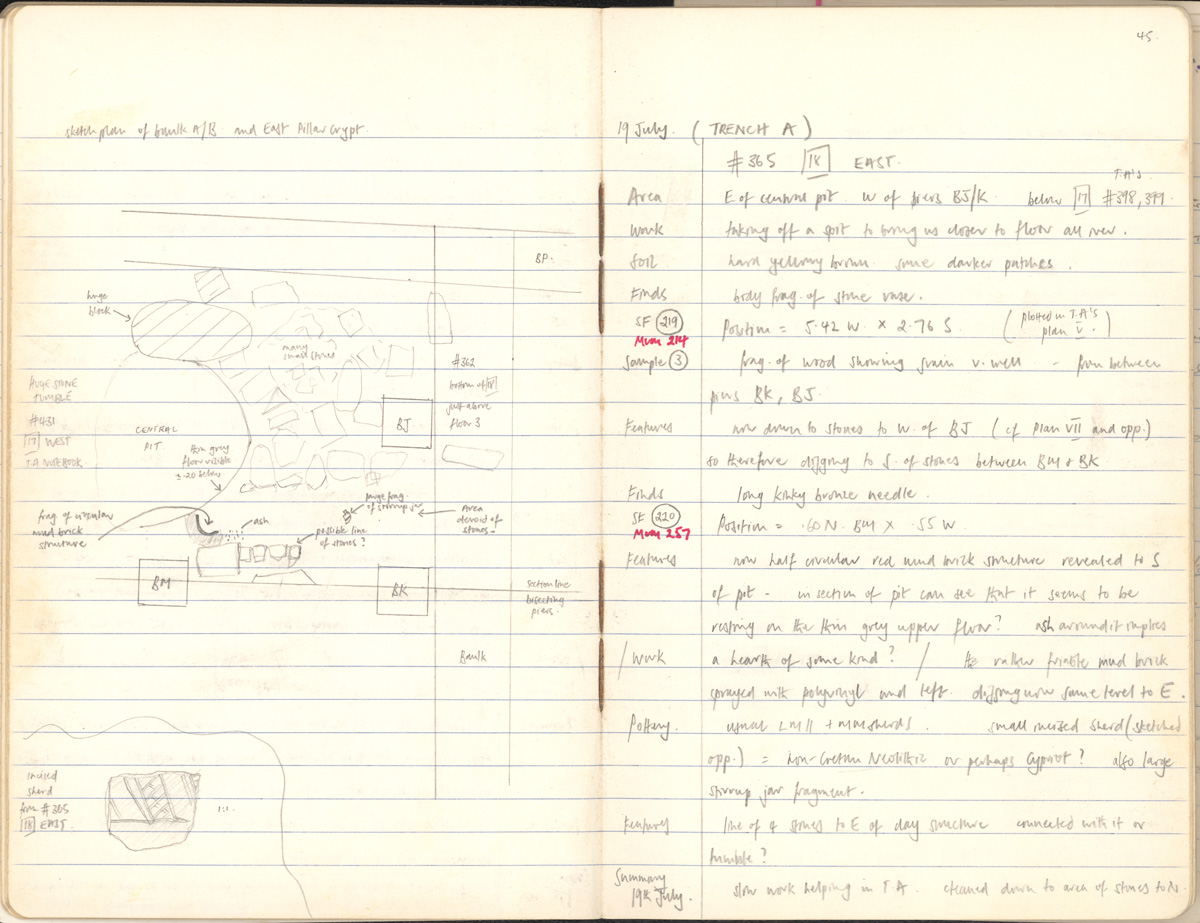 sketch plan of baulk A/B and East Pillar Crypt.
BP.
huge block
many small stones
#362
bottom of 18
just above floor 3
HUGE STONE TUMBLE
#431
17 WEST
T.A NOTEBOOK
CENTRAL PIT.
BJ
thin grey floor visible ± .20 below
large frag. of stirrup jar
Area devoid of stones
frag of circular mud brick structure
ash
possible line of stones?
BM
BK
section line bisecting piers.
Baulk
incised sherd from #365 18 EAST.
1:1.
45.
19 July. (TRENCH A)
#365 18 EAST.
T.A'S
Area E of central pit. W of piers BJ/K. below 17 #398, 399
Work taking off a spit to bring us closer to floor all over.
Soil hard yellowy brown some darker patches.
Finds body frag. of stone vase.
SF 219 Position = 5.42 W. × 2.76 S. (plotted in T.A'S plan V.)
Mum 214
Sample 3 frag. of wood showing grain v. well - from between
piers BK, BJ.
Features now down to stones to W. of BJ (cf Plan VII and opp.)
so therefore digging to S. of stones between BM & BK
Finds long kinky bronze needle.
SF 220 Position = .60 N. BM × .55 W
Mum 257
Features now half circular red mud brick structure revealed to S
of pit - in section of pit can see that it seems to be
resting on the thin grey upper floor? ash around it implies
/ Work a hearth of some kind? / the rather friable mud brick
sprayed with polyvinyl and left. digging now same level to E.
Pottery. usual LM II + MM sherds. small incised sherd (sketched
opp.) = non-Cretan Neolithic or perhaps Cypriot? also large
stirrup jar fragment.
Features line of 4 stones to E of clay structure connected with it or
tumble?
Summary 19th July. slow work helping in T A. cleaned down to area of stones to N.